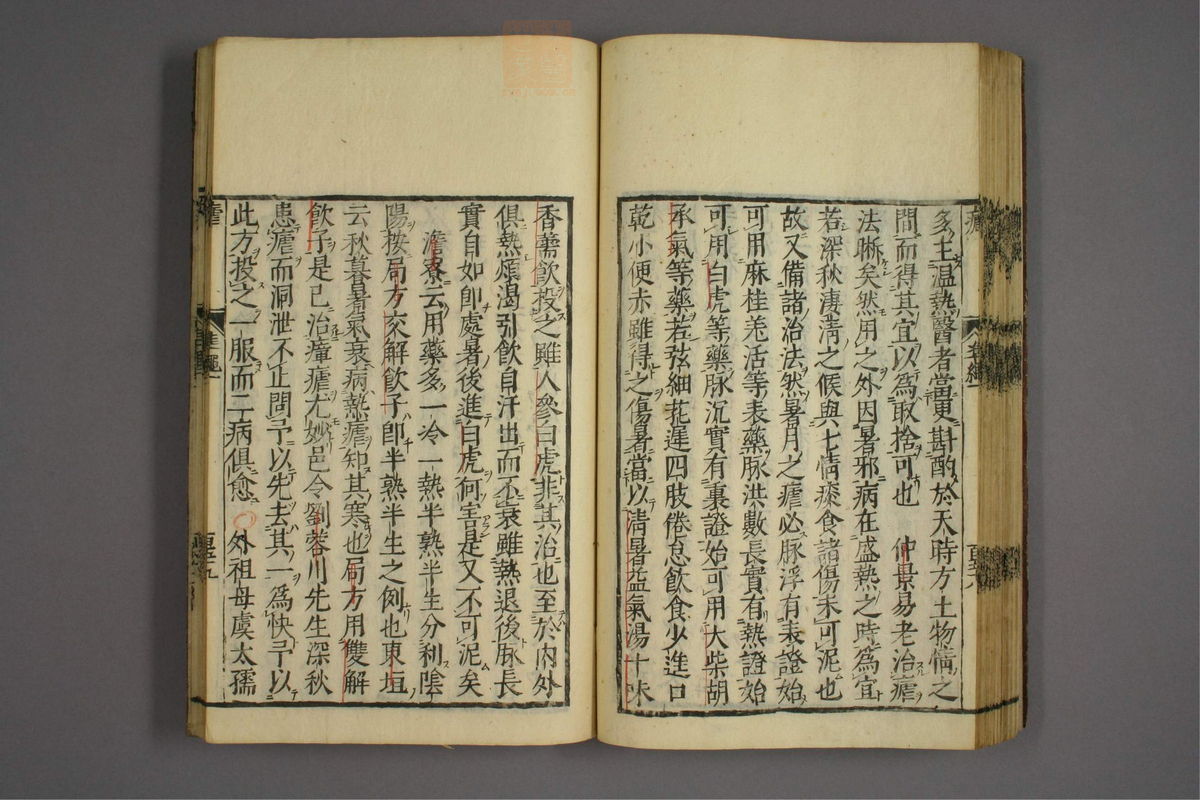 多主温熱醫者當更斟酌於天時方土物情之
間而得其宜以爲取捨可也　仲景易老治瘧
法晰矣然用之外因暑邪病在盛熱之時爲宜
若深秋凄清之候與七情痰食諸傷未可泥也
故又備諸治法然暑月之瘧必脉浮有表證始
可用麻桂羌活等表藥脉洪數長實有熱證始
可用白虎等藥脉沉實有裏證始可用大柴胡
承氣等藥若弦細芤遲四肢倦怠飲食少進口
乾小便赤雖得之傷暑當以清暑益氣湯十味
香薷飲投之雖人參白虎非其治也至於内外
俱熱煩渴引飲自汗出而不衰雖熱退後脉長
實自如即處暑後進白虎何害是又不可泥矣
澹寮云用藥多一冷一熱半熟半生分利陰
陽按局方交解飲子即半熟半生之例也東垣
云秋暮暑氣衰病熱瘧知其寒也局方用雙解
飲子是已治瘴瘧尤妙邑令劉蓉川先生深秋
患瘧而洞泄不止問予以先去其一爲快予以
此方投之一服而二病俱愈　外祖母虞太孺